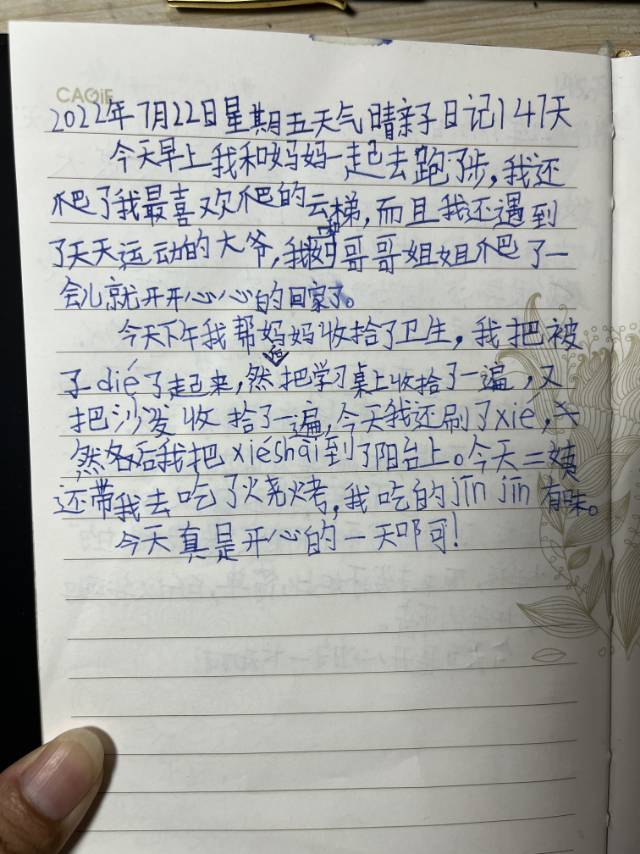 CAQiF
2022年7月22日星期五天气晴亲子日记147天
今天早上我和妈妈一起去跑了步,我还
爬了我最喜欢爬的云梯,而且我还遇到
了天天运动的大爷,我和哥哥姐姐爬了一
会儿就开开心心的回家了。
今天下午我帮妈妈收拾了卫生,我把被
子dié了起来,然后把学习桌上收拾了一遍,又
把沙发收拾了一遍,今天我还刷了xié,
然后我把xiéshài到了阳台上。今天二姨
还带我去吃了烧烤,我吃的jīn jīn有味。
今天真是开心的一天啊!